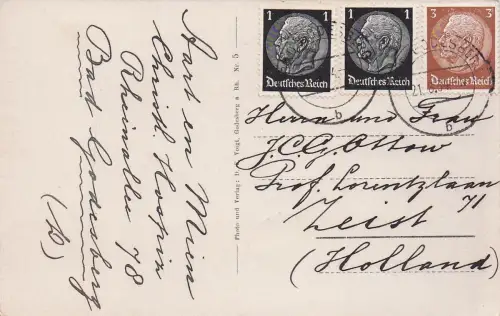 Aart en Mien
Christl. Hospiz
Rheinallee 78
Bad Godesberg
Photo und Verlag: D. v. Voigt, Godesberg a. Rh. Nr. 5
1
Deutsches Reich
1
Deutsches Reich
3 3
Deutsches Reich
b
b
Herrn und Frau
J.C.G. Ottow
Prof. Lorentzlaan
71
Zeist
(Holland)